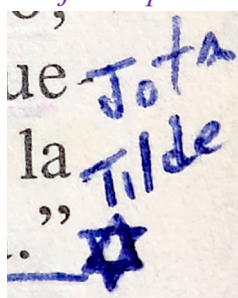 ue Jota
la Tilde
.”